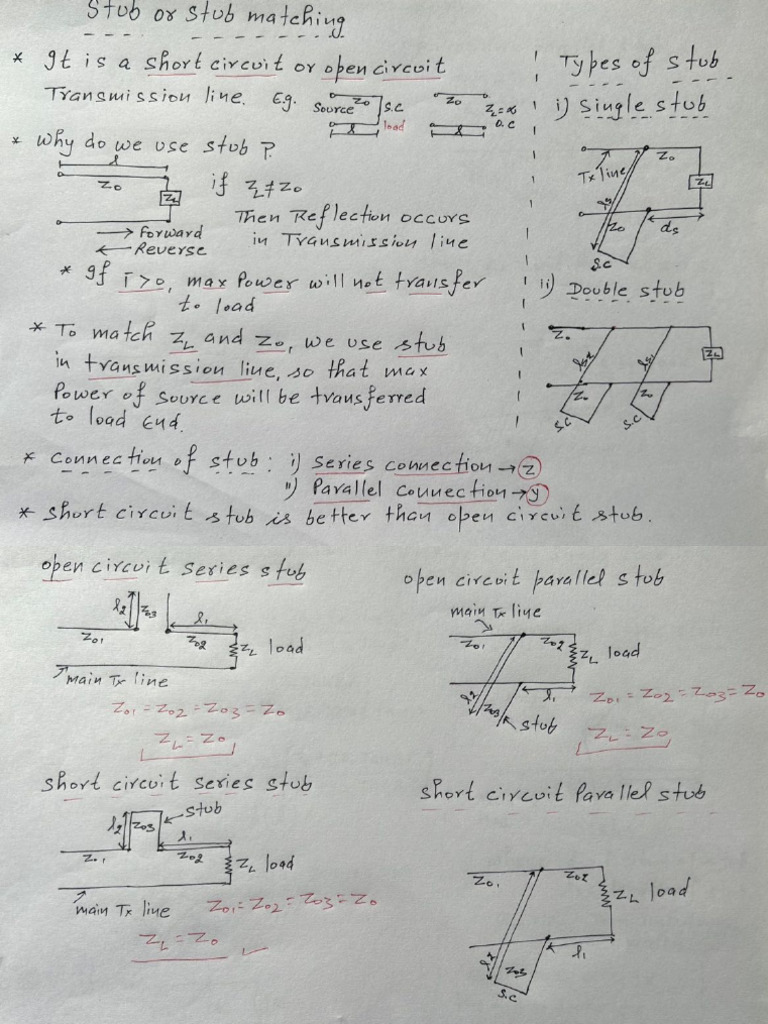 Stub or stub matching
* It is a short circuit or open circuit
Transmission line. E.g.
Source Z0 S.C
load
l
Z0 ZL=∞
O.C
l
* Why do we use stub?
l
Z0
ZL
→ Forward
← Reverse
if ZL≠Z0
Then Reflection occurs
in Transmission line
* If Γ>0, max Power will not transfer
to load
* To match ZL and Z0, we use stub
in transmission line, so that max
Power of source will be transferred
to load end.
Types of stub
i) Single stub
Tx line
Z0
ZL
ls
Z0
ds
S.C
ii) Double stub
Z0
ls2
ls1
ZL
Z0
Z0
S.C
S.C
* Connection of stub: i) Series connection → Z
ii) Parallel connection → y
* Short circuit stub is better than open circuit stub.
open circuit series stub
l2
Z03
l1
Z01
Z02
ZL load
main Tx line
Z01 = Z02 = Z03 = Z0
ZL = Z0
open circuit parallel stub
main Tx line
Z01
Z02
ZL load
l2
Z03
l1
stub
Z01 = Z02 = Z03 = Z0
ZL = Z0
Short circuit series stub
l2
Z03
stub
l1
Z01
Z02
ZL load
main Tx line
Z01 = Z02 = Z03 = Z0
ZL = Z0 ✓
Short circuit Parallel stub
Z01
Z02
ZL load
l2
Z03
l1
S.C